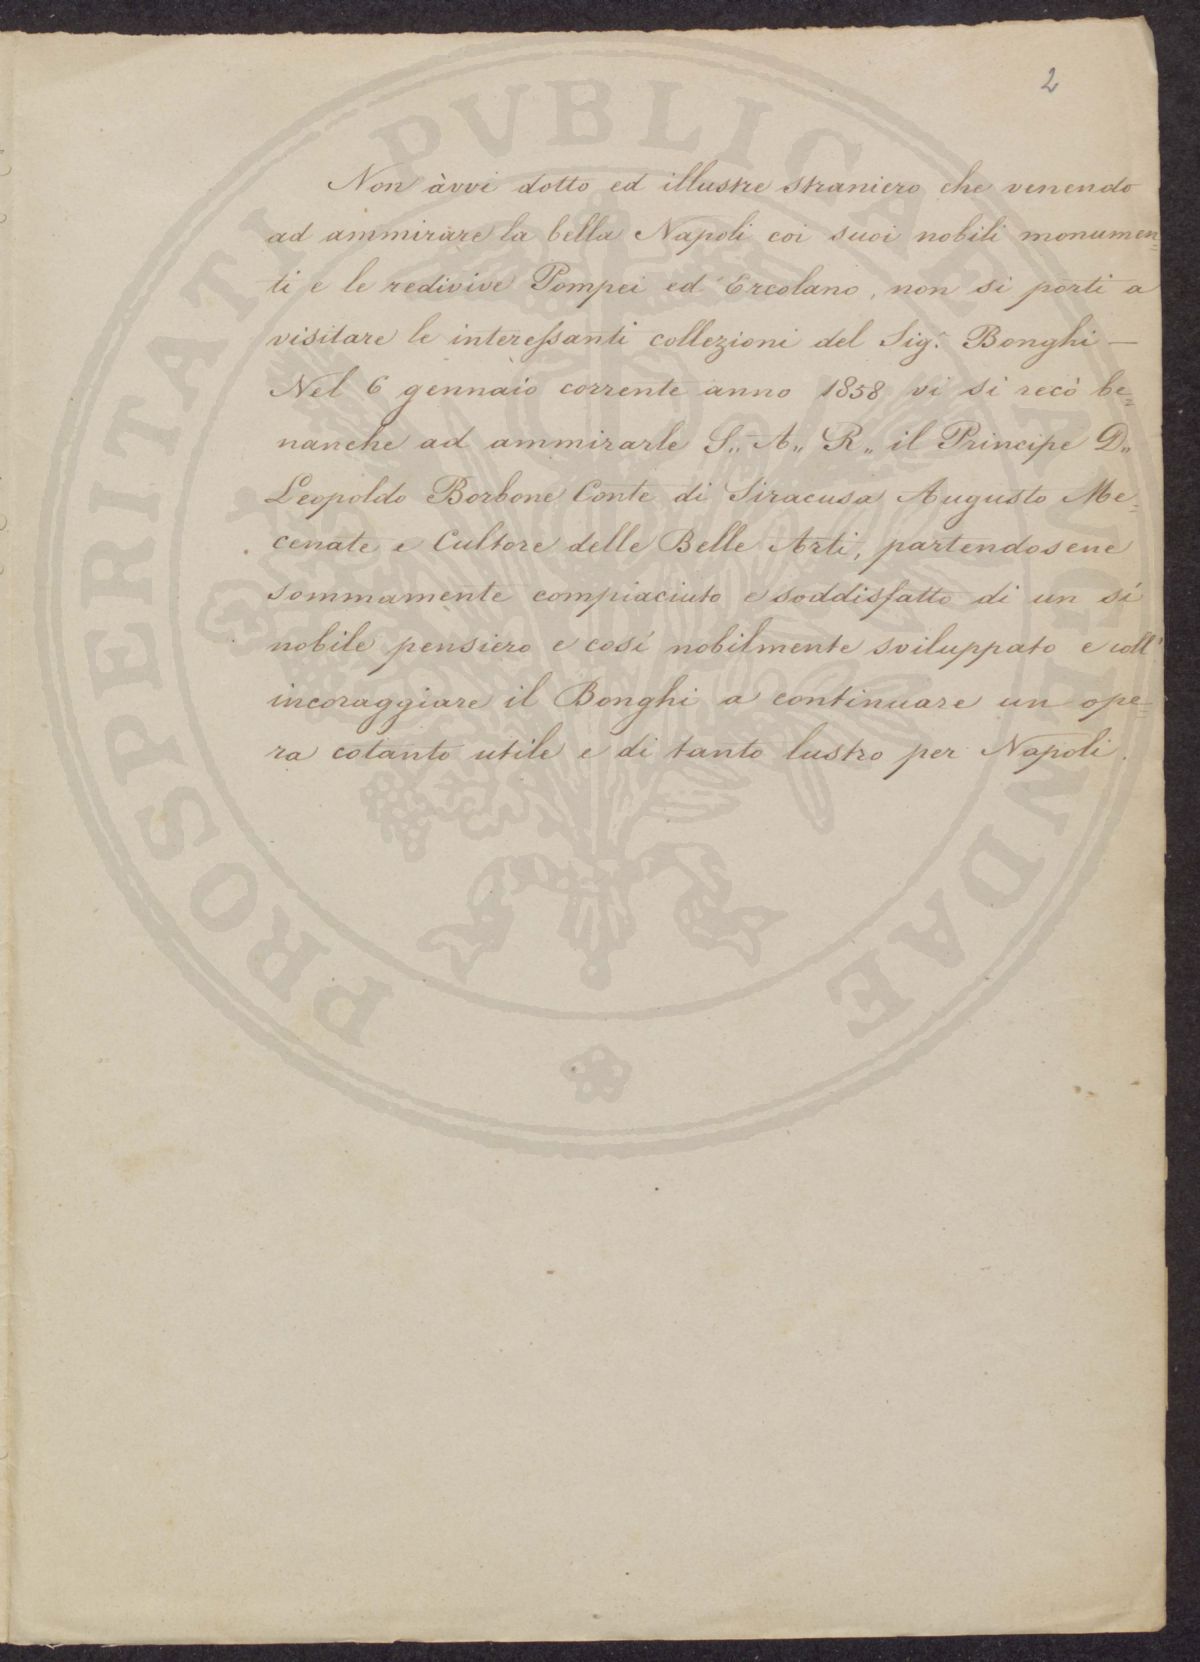 2
Non àvvi dotto ed illustre straniero che venendo
ad ammirare la bella Napoli coi suoi nobili monumen=
ti e le redivive Pompei ed Ercolano, non si porti a
visitare le interessanti collezioni del Sig.r Bonghi —
Nel 6 gennaio corrente anno 1858 vi si recò be=
nanche ad ammirarle S„ A„ R„ il Principe D„
Leopoldo Borbone Conte di Siracusa Augusto Me=
cenate e Cultore delle Belle Arti, partendosene
sommamente compiaciuto e soddisfatto di un sí
nobile pensiero e cosí nobilmente sviluppato e coll'
incoraggiare il Bonghi a continuare un ope=
ra cotanto utile e di tanto lustro per Napoli.
PROSPERITATI PVBLICAE AVGENDAE